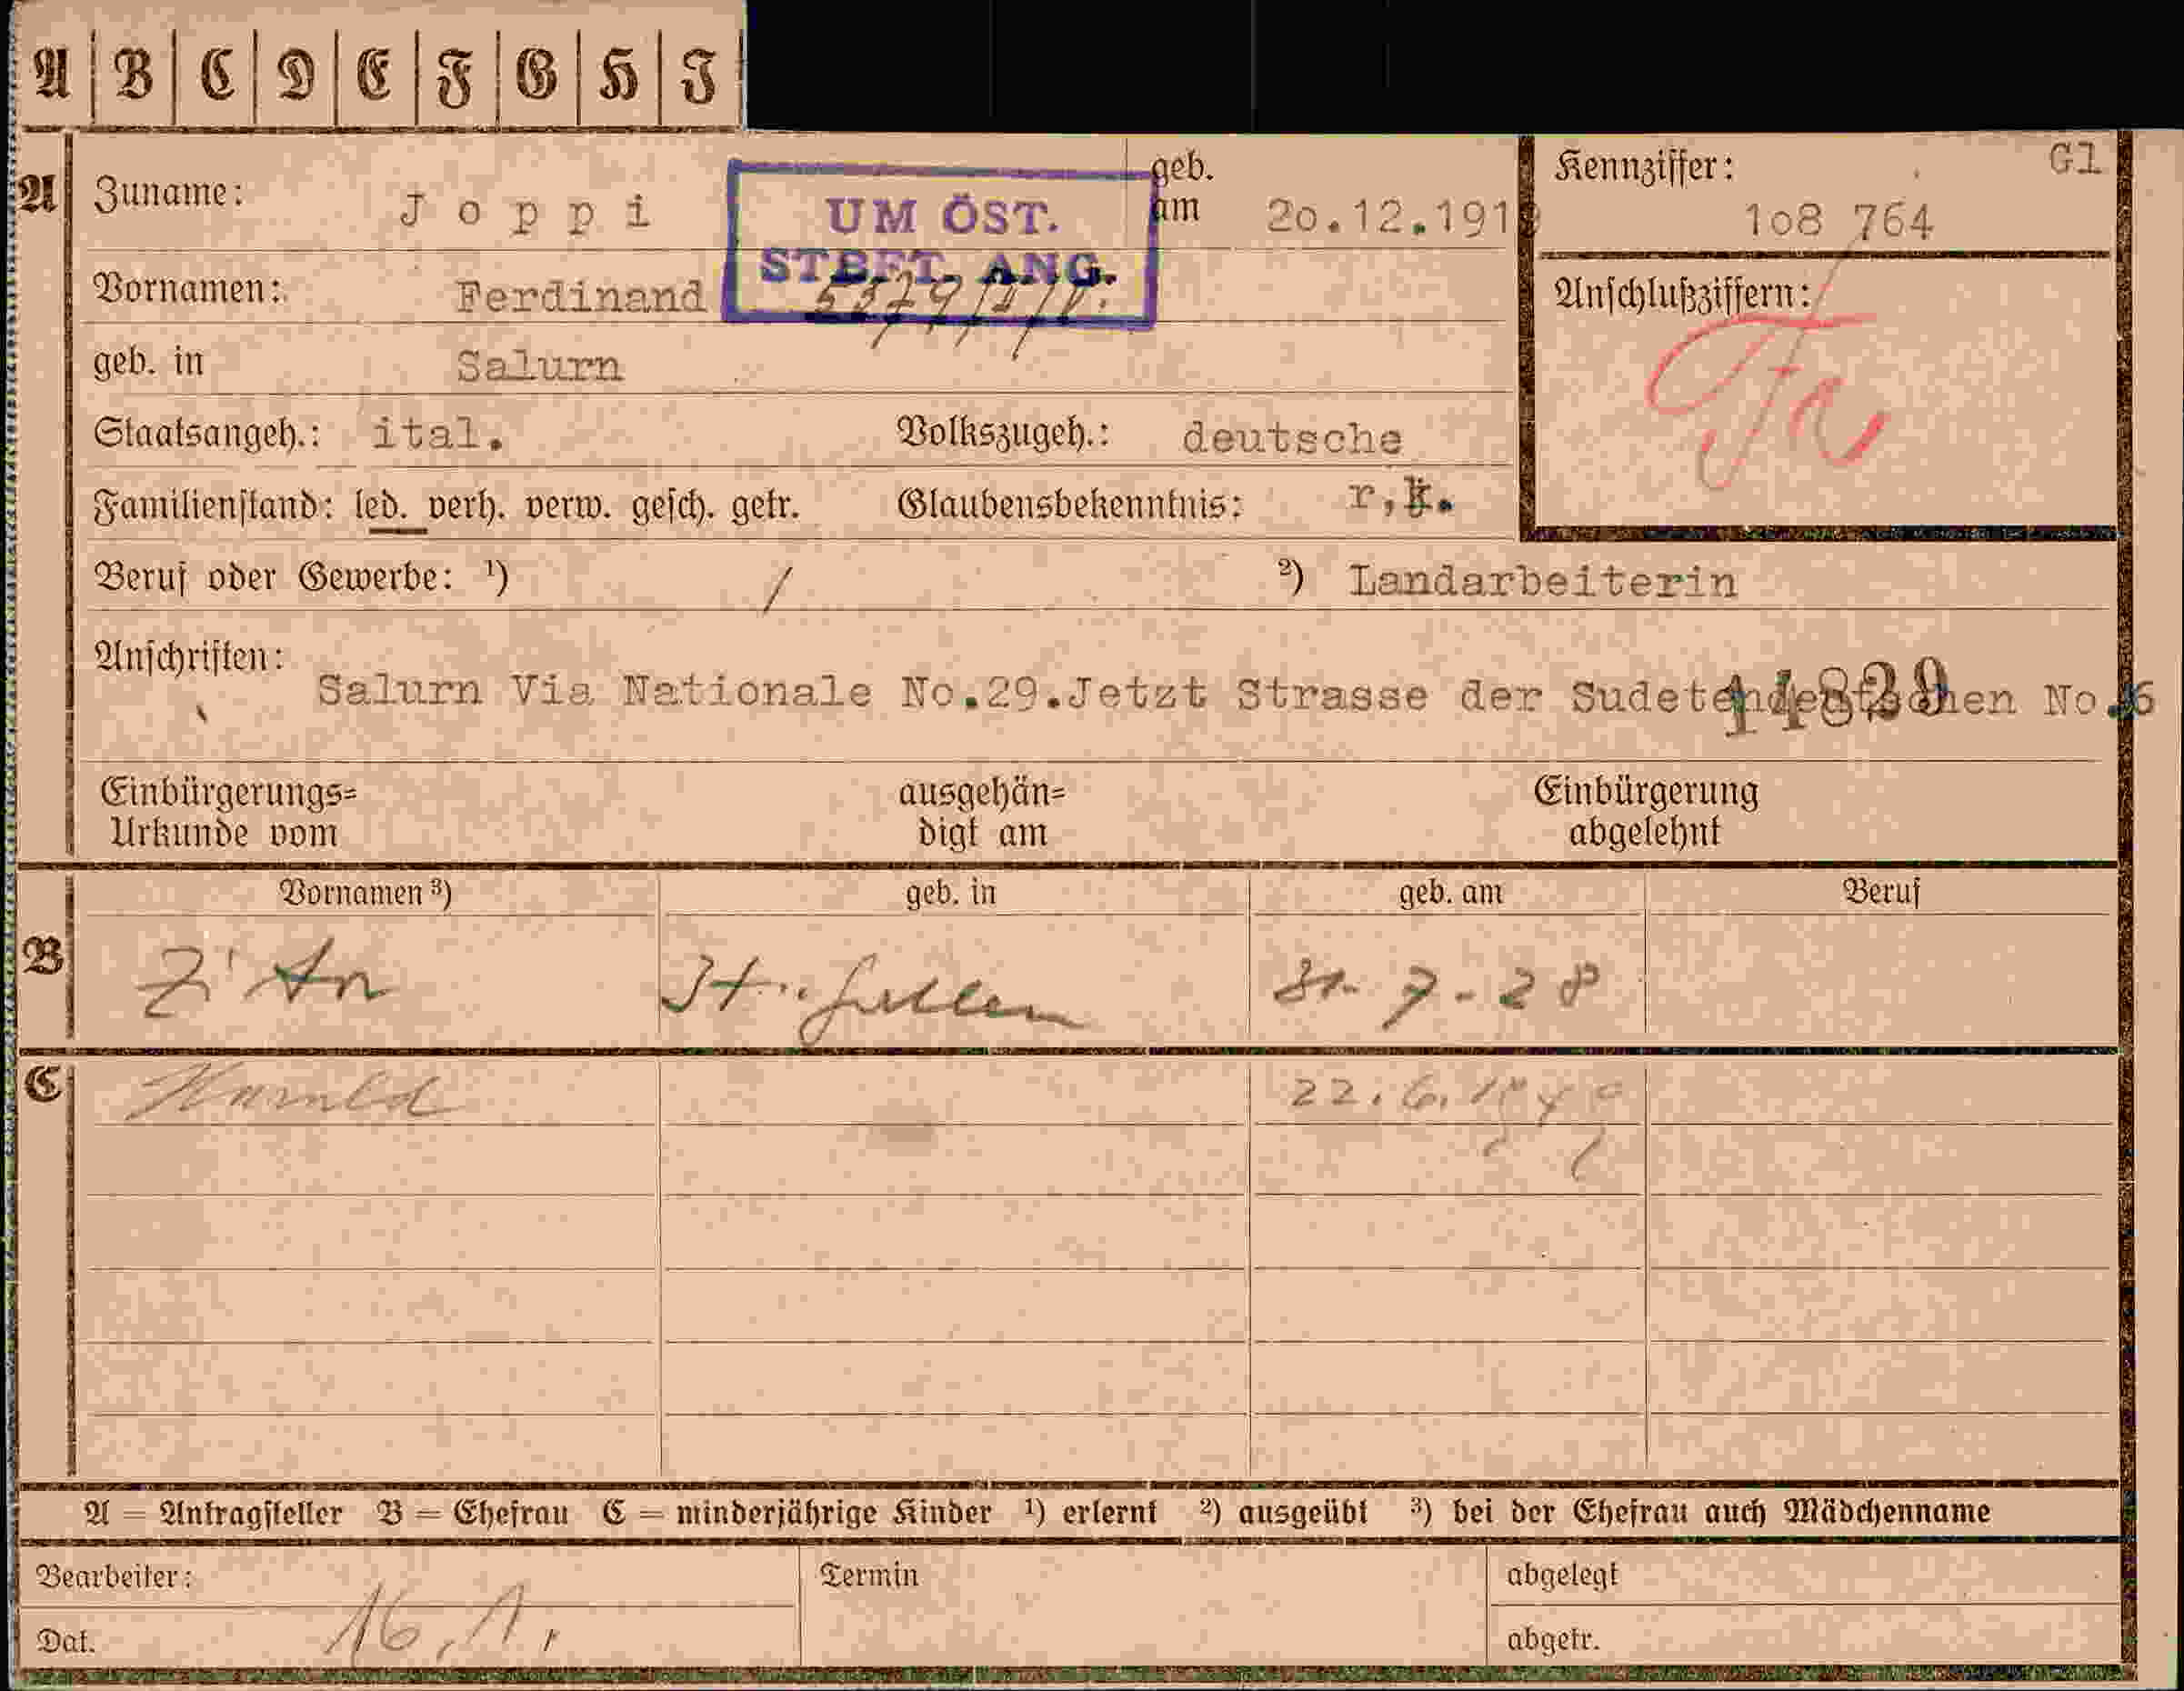 A B C D E F G H I
A
Zuname: Joppi
geb. am 20.12.191
Kennziffer: Gl
108 764
UM ÖST.
STBFT. ANG.
Vornamen: Ferdinand
Anschlußziffern:
geb. in Salurn
Staatsangeh.: ital. Volkszugeh.: deutsche
Familienstand: led. verh. verw. gesch. getr. Glaubensbekenntnis: r,k.
Beruf oder Gewerbe: ¹) / ²) Landarbeiterin
Anschriften:
Salurn Via Nationale No.29.Jetzt Strasse der Sudetendeutschen No. 6
11829
Einbürgerungs= ausgehän= Einbürgerung
Urkunde vom digt am abgelehnt
B
Vornamen ³) geb. in geb. am Beruf
Zita St. Gallen 31-7-28
C
Harald 22.6.194
A = Antragsteller B = Ehefrau C = minderjährige Kinder ¹) erlernt ²) ausgeübt ³) bei der Ehefrau auch Mädchenname
Bearbeiter: Termin abgelegt
Dat. 16.1. abgetr.